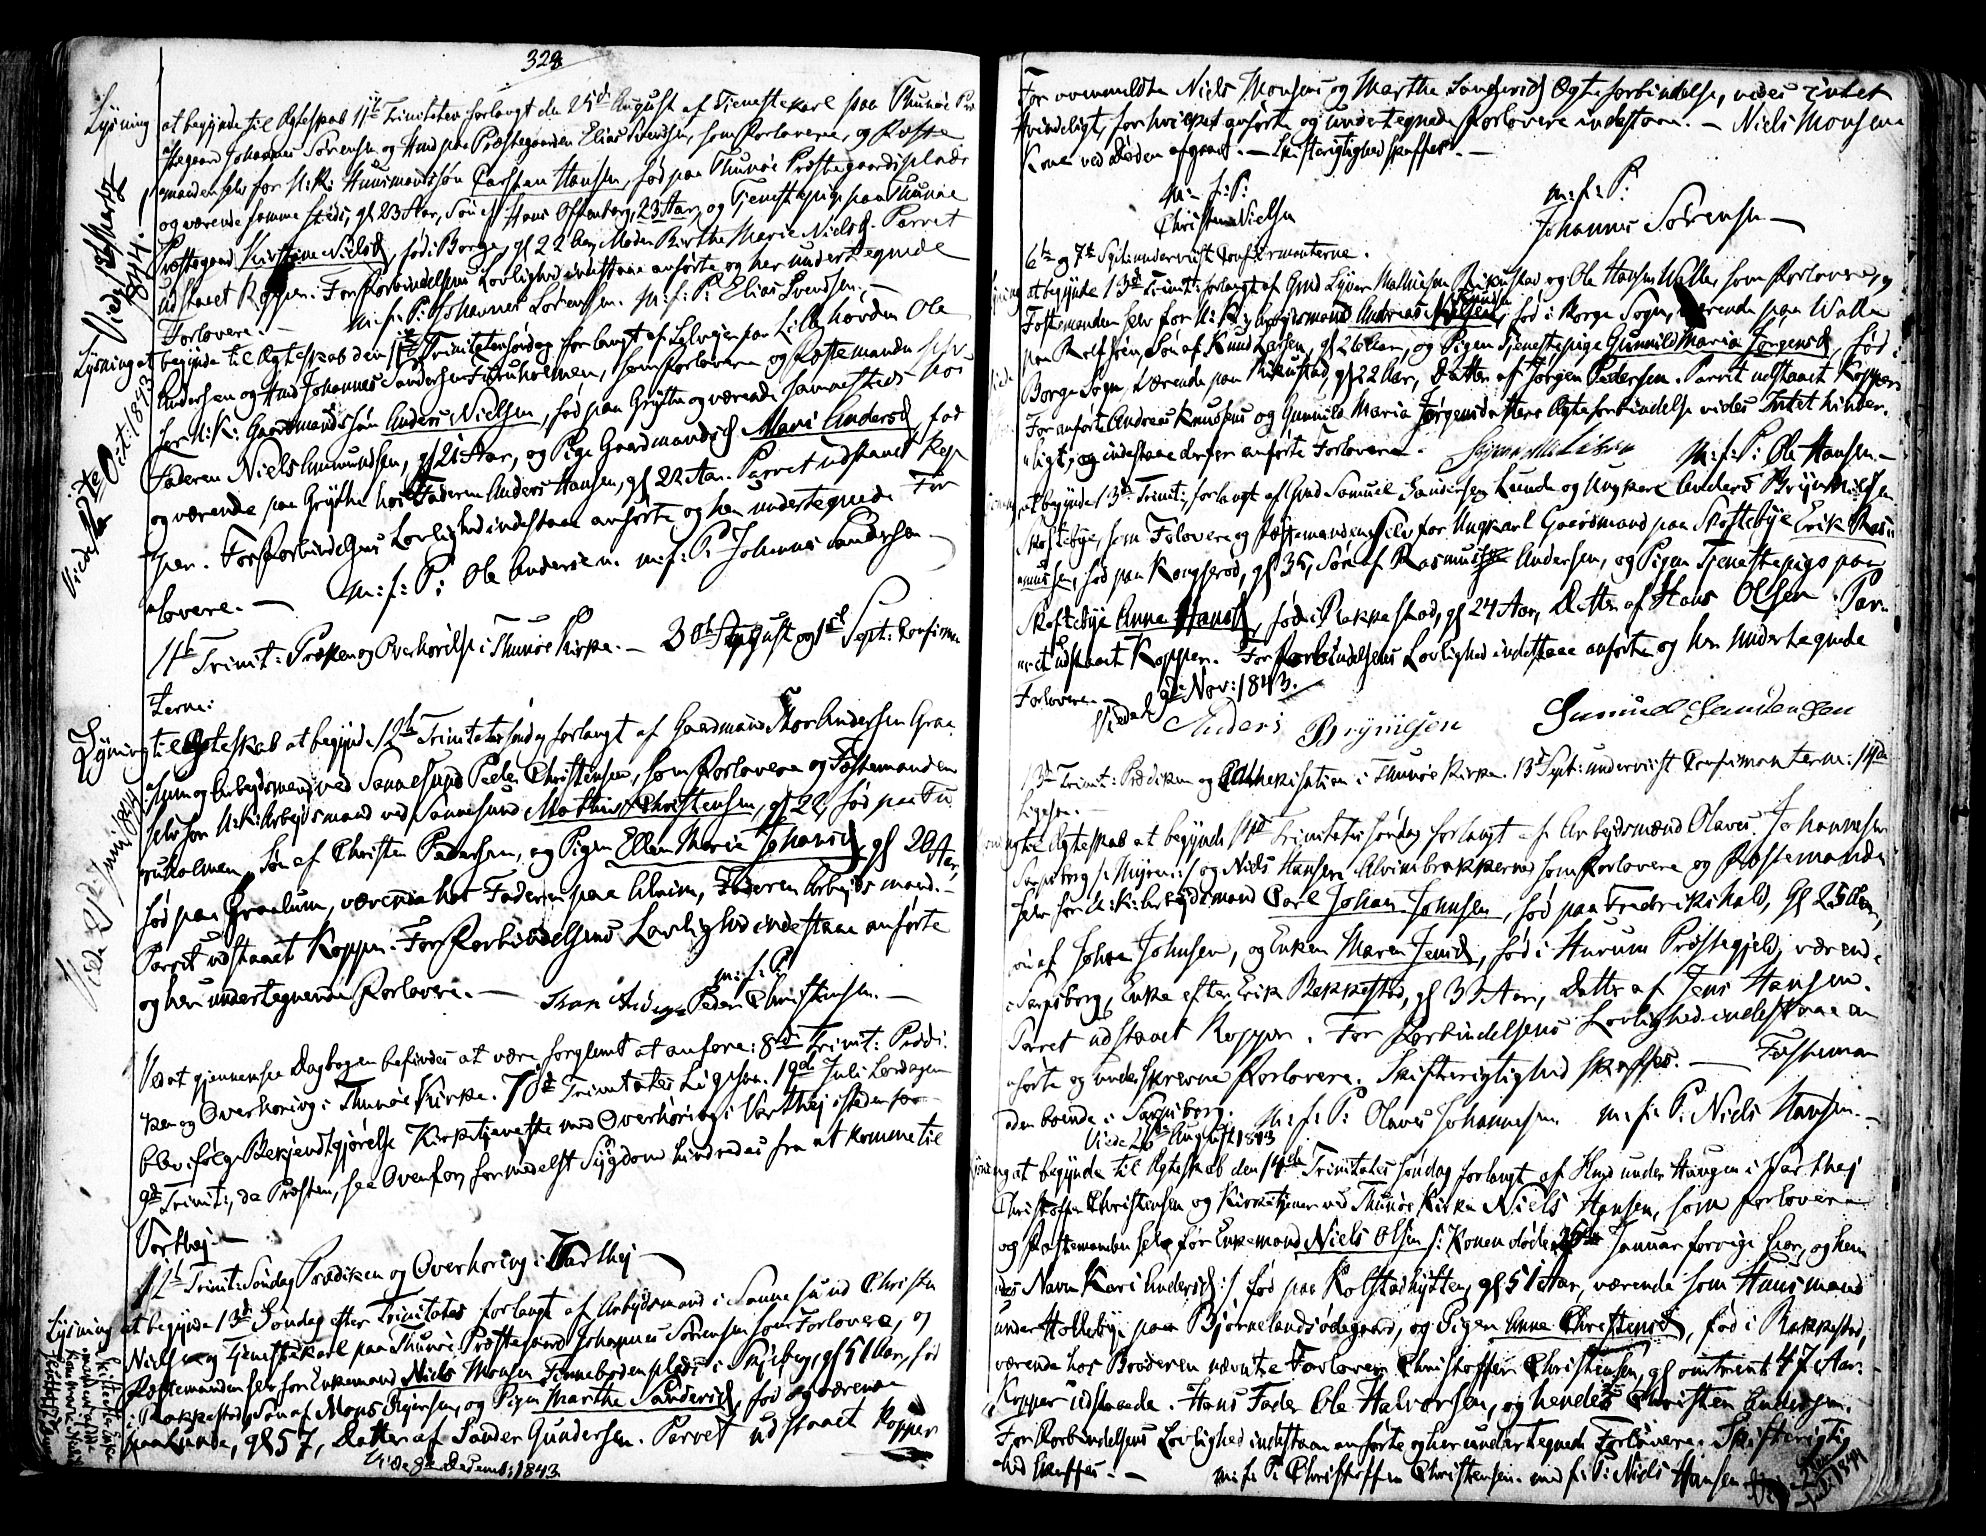 328
Lysning at begynde til Ægteskab 11te Trinitatis forlangt den 25de August af Tjenestekarl paa Thunøe Præ
stegaard Johannes Sørensen og Hmd paa Præstegaarden Elias Svendsen, som Forlovere, og Fæste
manden selv for U: K: Huusmandssøn Carsten Hansen, født paa Thunøe Præstegaardsplads
og værende samme Steds, gl 23 Aar, Søn af Hans 23 Aar, og Tjenestepige paa Thunøe
Præstegaard Kirstine Nielsd, født i Borge, gl 22 Aar, Moder Birthe Marie Nielsd. Parret
udstaaet Kopper. For Forbindelsens Lovlighed indestaae anførte og her undertegnede
Forlovere. — m: f: P: Johannes Sørensen. m: f: P: Elias Svendsen. —
Viede 1844.
Lysning at begynde til Ægteskab den 11te Trinitatissøndag forlangt af Lillehovden Ole
Andersen og Hmd Johannes Sandersen Furuholmen, som Forlovere og Fæstemanden selv
for U: K: Gaardmandssøn Anders Nielsen, født paa Grythe og værende sammesteds hos
Faderen Niels Amundsen, gl 21 Aar, og Pige Gaardmandsd Mari Andersd, fød
og værende paa Grythe hos Faderen Anders Hansen, gl 22 Aar. Parret udstaaet Kop
per. For Forbindelsens Lovlighed indestaae anførte og her undertegnede For
lovere. — m: f: P: Ole Andersen. m: f: P: Johannes Sandersen —
Viede Oct: 1843
11te Trinit: Præken og Overhørelse i Thunøe Kirke. — 30te August og 1ste Sept: Confirman
terne:
Lysning til Ægteskab at begynde 12te Trinitatissøndag forlangt af Gaardmand Thor Andersen Graa
lum og Arbejdsmand ved Sannesund Peder Christensen, som Forlovere og Fæstemanden
selv for U: K: Arbejdsmand ved Sannesund Mathias Christensen, gl 22, født paa Fu
ruholmen, Søn af Christen Pedersen, og Pigen Ellen Maria Johansd, gl 20 Aar,
fød paa Graalum, værende hos Faderen paa Alvim, Faderen Arbejdsmand. —
Parret udstaaet Kopper. For Forbindelsens Lovlighed indestaae anførte
og her undertegnede Forlovere. — m: f: P:
Thor Anders Peder Christensen. —
Viede 27 Juni 1844
Ved at gjennemsee Dagbogen befindes at være forglemt at anføre: 8de Trinit: Prædi
ken og Overhøring i Thunøe Kirke. 10de Trinitatis Ligesaa. 19de Juli Løverdagen
blev ifølge Bekjendtgjørelse Kirketjeneste med Overhøring i Varthej istedenfor
9de Trinit:, da Præsten, see Ovenfor, formedelst Sygdom hindredes fra at komme til
Varthej. —
12te Trinit: Søndag Prædiken og Overhøring i Varthej —
Lysning at begynde 13de Søndag efter Trinitatis forlangt af Arbejdsmand i Sannesund Christen
Nielsen og Tjenestekarl paa Thunøe Præstegaard Johannes Sørensen som Forlovere, og
Fæstemanden selv for Enkemand Niels Monsen i Skjeberg, gl 51 Aar, fød
i Rakkestad, Søn af Mons og Pigen Marthe Sandersd, fød og værende
paa Lunde, gl 57, Datter af Sander Gundersen. Parret udstaaet Kopper
Viede Decemb: 1843.
For ovenmeldte Niels Monsens og Marthe Sandersds Ægteforbindelse, vides intet
Hinderligt, for hvilket anførte og undertegnede Forlovere indestaae. — Niels Monsens
Kone ved Døden afgaaet. — Skifterigtighed skaffes. —
m: f: P:
Christen Nielsen
m: f: P:
Johannes Sørensen —
6te og 7de Sept: underviist Confirmanterne.
at begynde 13de Trinit: forlangt af Gmd Syver Mathisen og Ole Hansen Walle, som Forlovere, og
Fæstemanden selv for U: K: Andreas Knudsen, fød i Borge Sogn, værende paa Walle
paa Rolfsøen, Søn af Knud Larsen, gl 26 Aar, og Pigen Tjenestepige Gunnild Maria Jørgensd, fød i
Borge Sogn, værende paa gl 22 Aar, Datter af Jørgen Pedersen. Parret udstaaet Kopper.
For anførte Andreas Knudsens og Gunnild Maria Jørgensdatters Ægteforbindelse vides Intet hinder
ligt, og indestaae derfor anførte Forlovere. m: f: P: Ole Hansen. —
at begynde 13de Trinit:, forlangt af Gmd Samuel Sandersen Lunde og Ungkarl Anders Brynildsen
Skoftebye, som Forlovere og Fæstemanden selv for Ungkarl Gaardmand paa Skoftebye Erik Ras
mussen, fød paa Kongsrød, gl 35, Søn af Rasmus Andersen, og Pigen Tjenestepige paa
Skoftebye Anne Hansd, fød i Rakkestad, gl 24 Aar, Datter af Hans Olsen. Par
ret udstaaet Kopper. For Forbindelsens Lovlighed indestaae anførte og her Undertegnede
Forlovere
Viede d 9de Nov: 1843.
Anders Brynilsen Samuel Sandersen
13de Trinit: Prædiken og Catechisation i Thunøe Kirke. 13de Sept: underviist Confirmanterne: 14de
Ligesaa. —
til Ægteskab at begynde 14de Trinitatis søndag forlangt af Arbejdsmænd Olaves Johannesen
Sarpsborg og Niels Hansen Alvimbrækkerne som Forlovere og Fæstemanden
selv for U: K: Arbejdsmand Carl Johan Johnsen, fød paa Fredrikshald, gl 25 Aar,
Søn af Johan Johnsen, og Enken Maren Jensd, fød i Hurum Præstegjeld, værend
i Sarpsborg, Enke efter Erik Bekkestad, gl 33 Aar, Datter af Jens Hansen.
Parret udstaaet Kopper. For Forbindelsens Lovlighed indestaae an
førte og underskrevne Forlovere. Skifterigtighed skaffes. — Fæsteman
den boende i Sarpsborg. m: f: P: Olaves Johannesen m: f: P: Niels Hansen. —
Viede 26 August 1843
at begynde til Ægteskab den 14de Trinitatis søndag forlangt af Hmd under Haugen i Varthej
Christoffer Christensen og Kirketjener ved Thunøe Kirke Niels Hansen, som Forlovere
og Fæstemanden selv for Enkemand Niels Olsen /: Konen døde 25de Januar forrige Aar, og hen
des Navn Kari Andersd :/ fød paa Kolstadhytten, gl 51 Aar, værende som Huusmand
under Hollebye paa Bjørnelandsødegaard, og Pigen Anne Christensd, fød i Rakkestad,
værende hos Broderen nævnte Forlover Christoffer Christensen, gl omtrent 47 Aar. —
Kopper udstaaede. Hans Fader Ole Halvorsen, og hendes Christen Andersen.
For Forbindelsens Lovlighed indestaae anførte og her undertegnede Forlovere. Skifterigtig
hed skaffes. — m: f: P: Christoffer Christensen. m: f: P: Niels Hansen
1844